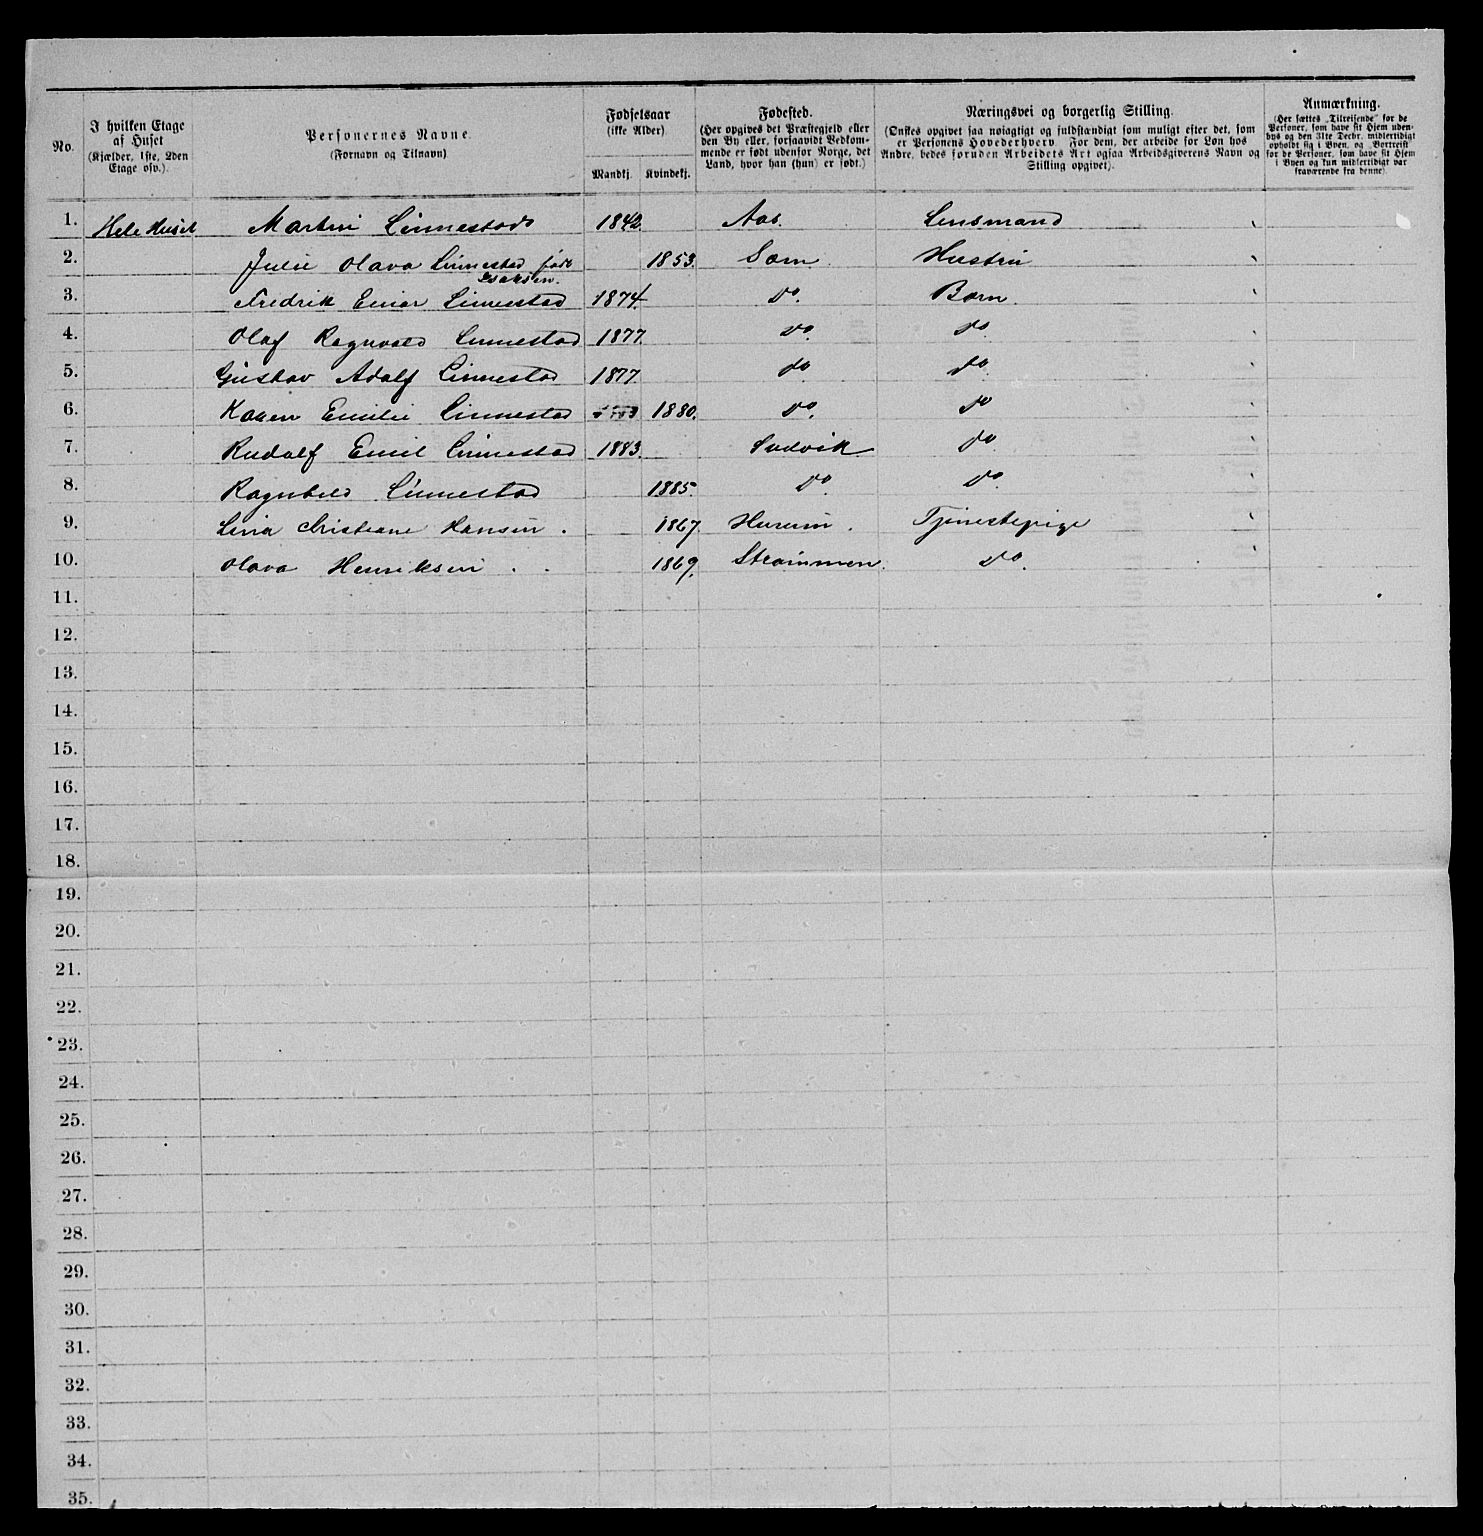 No.
I hvilken Etage af Huset (Kjælder, 1ste, 2den Etage osv.)
Personernes Navne. (Fornavn og Tilnavn)
Fødselsaar (ikke Alder)
Mandkj. Kvindekj.
Fødested. (Her opgives det Præstegjeld eller den By eller, forsaavidt Vedkommende er født udenfor Norge, det Land, hvor han (hun) er født.)
Næringsvei og borgerlig Stilling. (Ønskes opgivet saa nøiagtigt og fuldstændigt som muligt efter det, som er Personens Hovederhverv. For dem, der arbeide for Løn hos Andre, bedes foruden Arbeidets Art ogsaa Arbeidsgiverens Navn og Stilling opgivet).
Anmærkning. (Her sættes „Tilreisende" for de Personer, som have sit Hjem udenbys og den 31te Decbr. midlertidigt opholdt sig i Byen, og „Bortreist" for de Personer, som have sit Hjem i Byen og kun midlertidigt var fraværende fra denne).
1. Hele Huset Martin Linnestad 1842 Aas. Lensmand
2. Julie Olava Linnestad født Isaksen. 1853. Sæm. Hustru
3. Fredrik Einar Linnestad 1874 do. Børn.
4. Olaf Ragnvald Linnestad 1877. do. do
5. Gustav Adolf Linnestad 1877. do do
6. Karen Emilie Linnestad 1880. do. do
7. Rudolf Emil Linnestad 1883. Sndvik do
8. Ragnhild Linnestad 1885. do. do.
9. Lina Christiane Hansen. 1867. Hurum. Tjenestepige
10. Olava Henriksen 1869. Strømmen. do.
11.
12.
13.
14.
15.
16.
17.
18.
19.
20.
21.
22.
23.
24.
25.
26.
27.
28.
29.
30.
31.
32.
33.
34.
35.